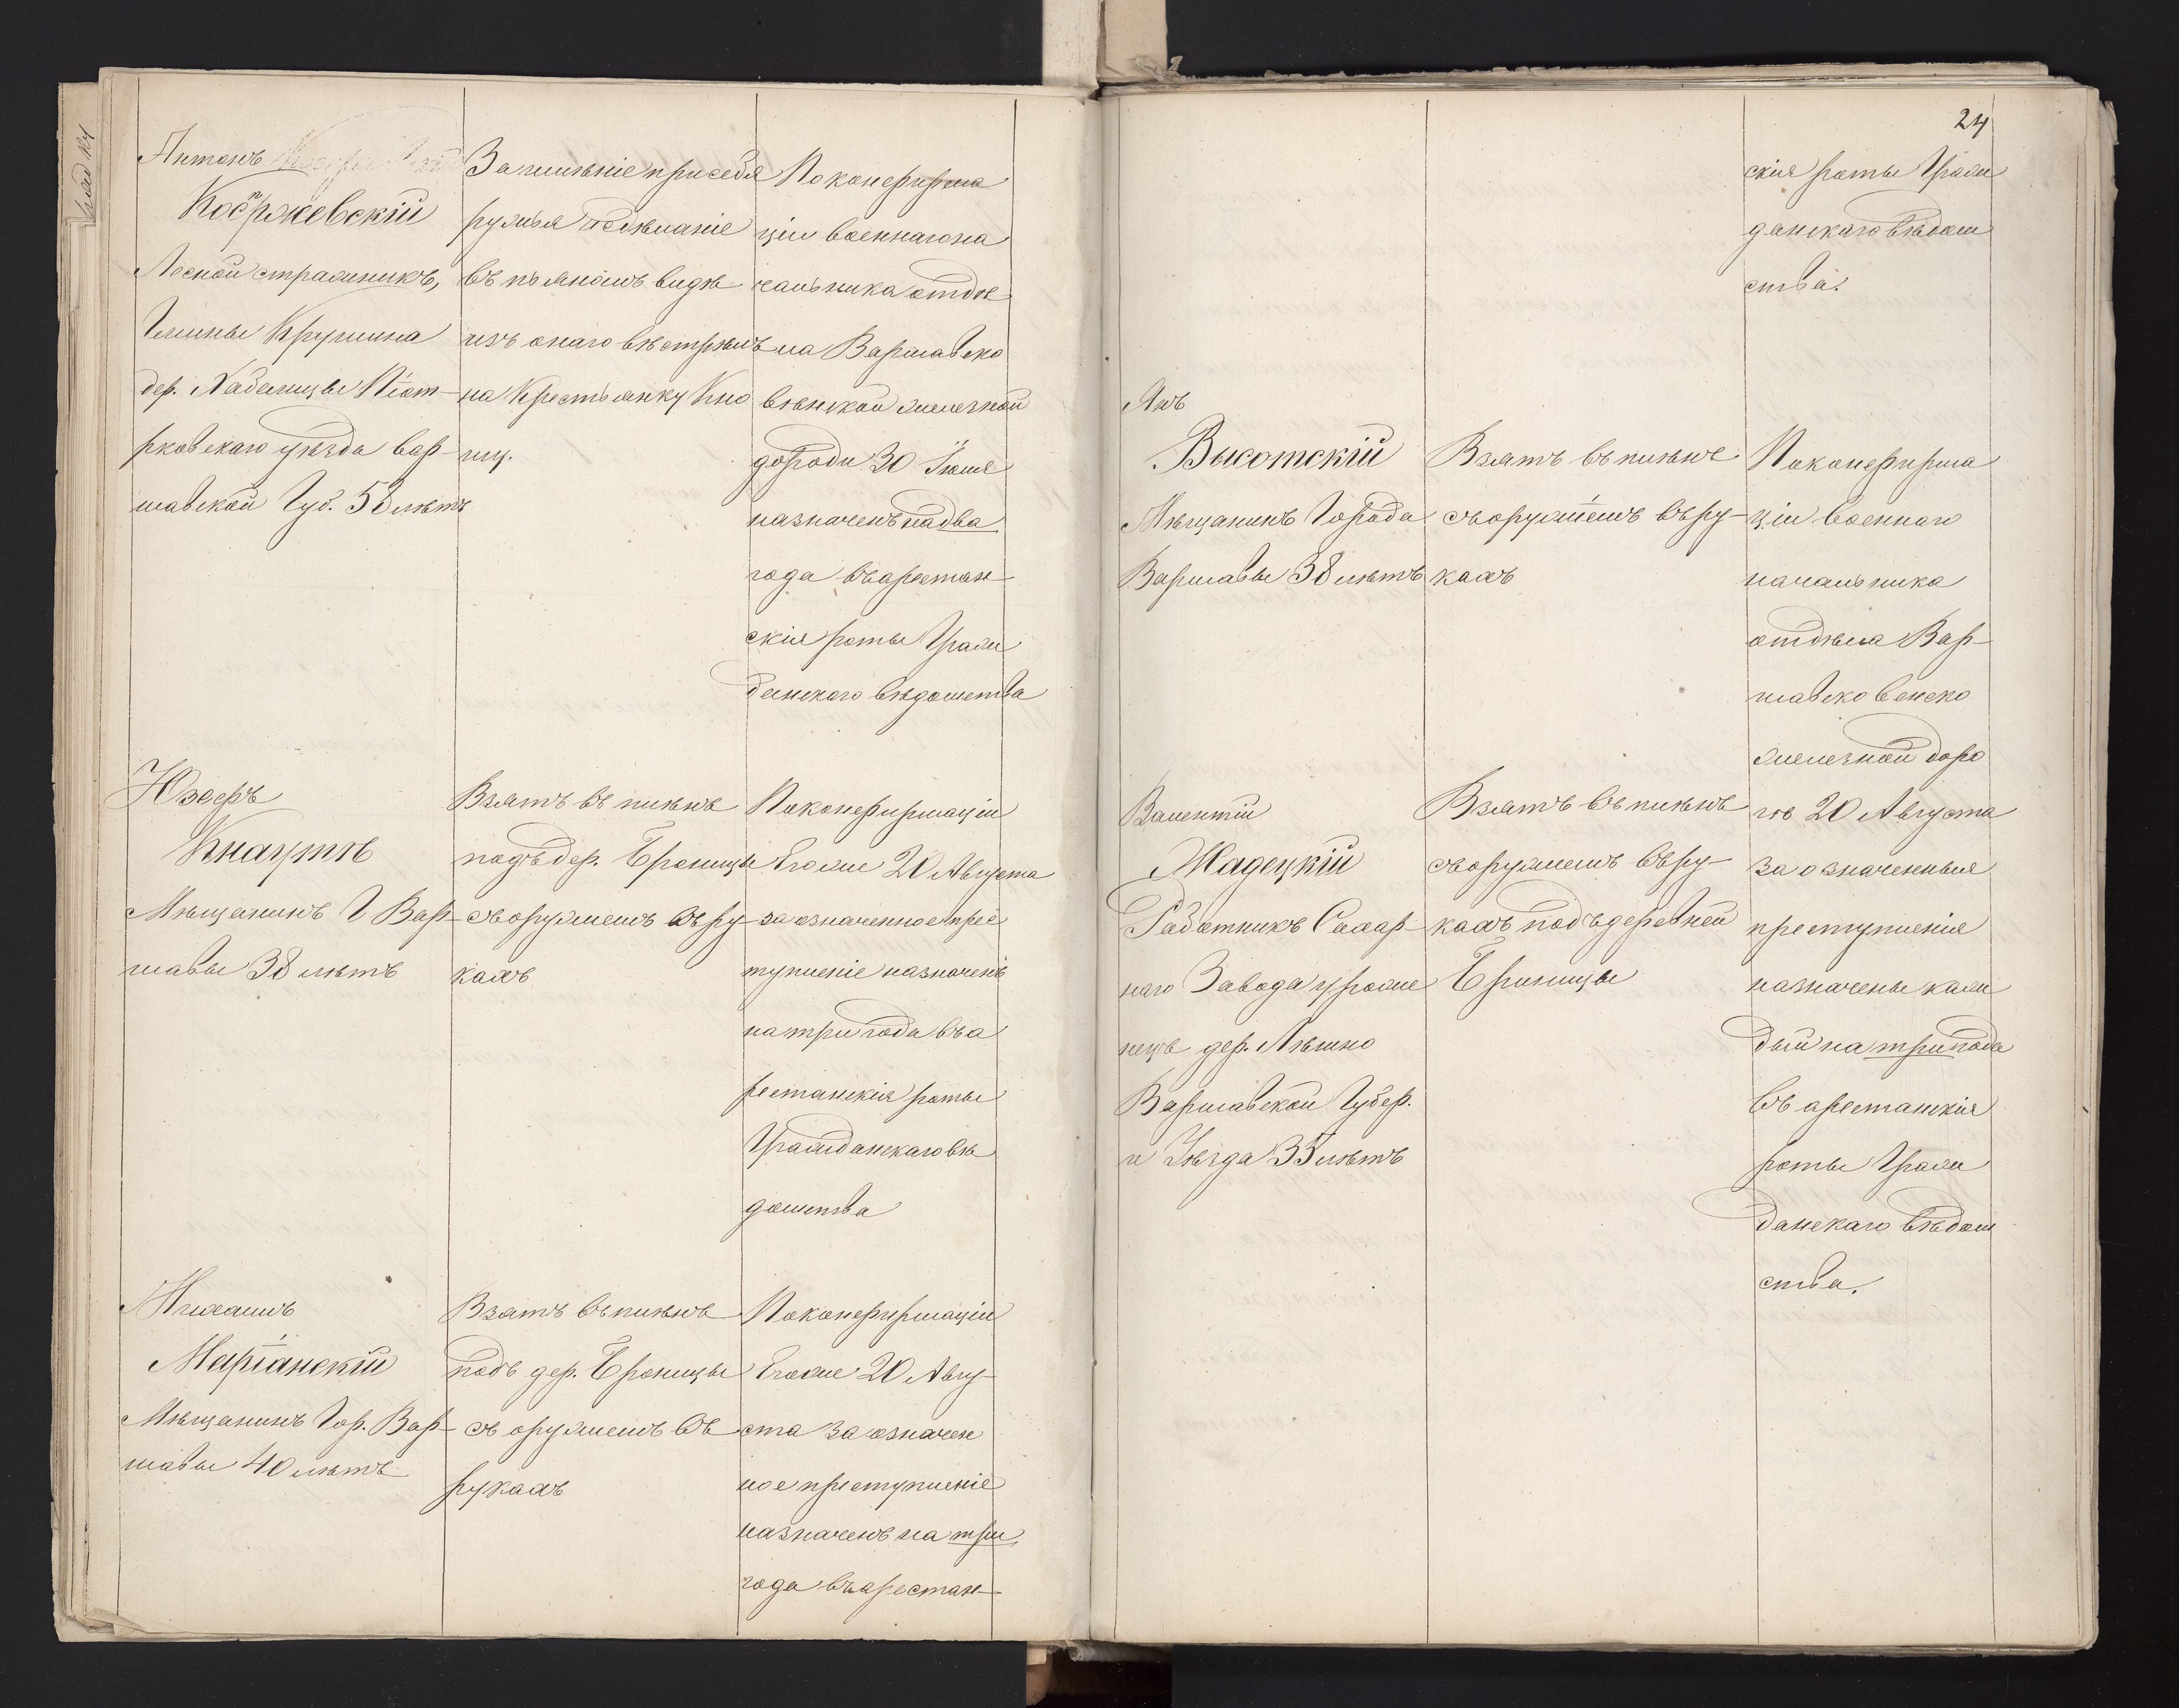 Антонъ
Костржевскій
Лесной стражникъ,
Гмины Крушина
дер. Хабелицы Піот-
рковскаго уѣзда Вар-
шавской Губ. 58 лѣтъ
За имѣніе при себѣ
ружья и сдѣланіе
въ пьяномъ видѣ
изъ онаго выстрѣлъ
на Крестьянку Кно
пку.
По конфирма
ціи военнаго на
чальника отдѣ
ла Варшавско
вѣнской желѣзной
дороги 30 Іюля
назначенъ на два
года въ арестан-
скія роты Граж
данскаго вѣдомства
Юзефъ
Кнаутъ
Мѣщанинъ Г Вар-
шавы 38 лѣтъ
Взятъ въ плѣнъ
подъ дер. Броницы
съ оружіемъ въ ру-
кахъ
По конфирмаціи
Его же 20 Августа
за означенное прес
тупленіе назначенъ
на три года въ а
рестанскія роты
Гражданскаго вѣ
домства
Михаилъ
Маріанскій
Мѣщанинъ Гор. Вар-
шавы 40 лѣтъ
Взятъ въ плѣнъ
подъ дер. Броницы
съ оружіемъ въ
рукахъ
По конфирмаціи
Его же 20 Авгу-
ста за означен
ное преступленіе
назначенъ на три
года въ арестан-
24
скія роты Граж
данскаго вѣдом
ства.
Янъ
Высотскій
Мѣщанинъ Города
Варшавы 38 лѣтъ
Взятъ въ плѣнъ
съ оружіемъ въ ру-
кахъ
По конфирма
ціи военнаго
начальника
отдѣла Вар-
шавско венско
желѣзной доро
гѣ 20 Августа
за означенныя
преступленія
назначены каж
дый на три года
въ арестанскія
роты Граж
данскаго вѣдом
ства.
Валентій
Жадецкій
Работникъ Сахар-
наго Завода уроже
нецъ дер. Лѣшно
Варшавской Губер.
и Уѣзда 35 лѣтъ
Взятъ въ плѣнъ
съ оружіемъ въ ру-
кахъ подъ деревней
Броницы